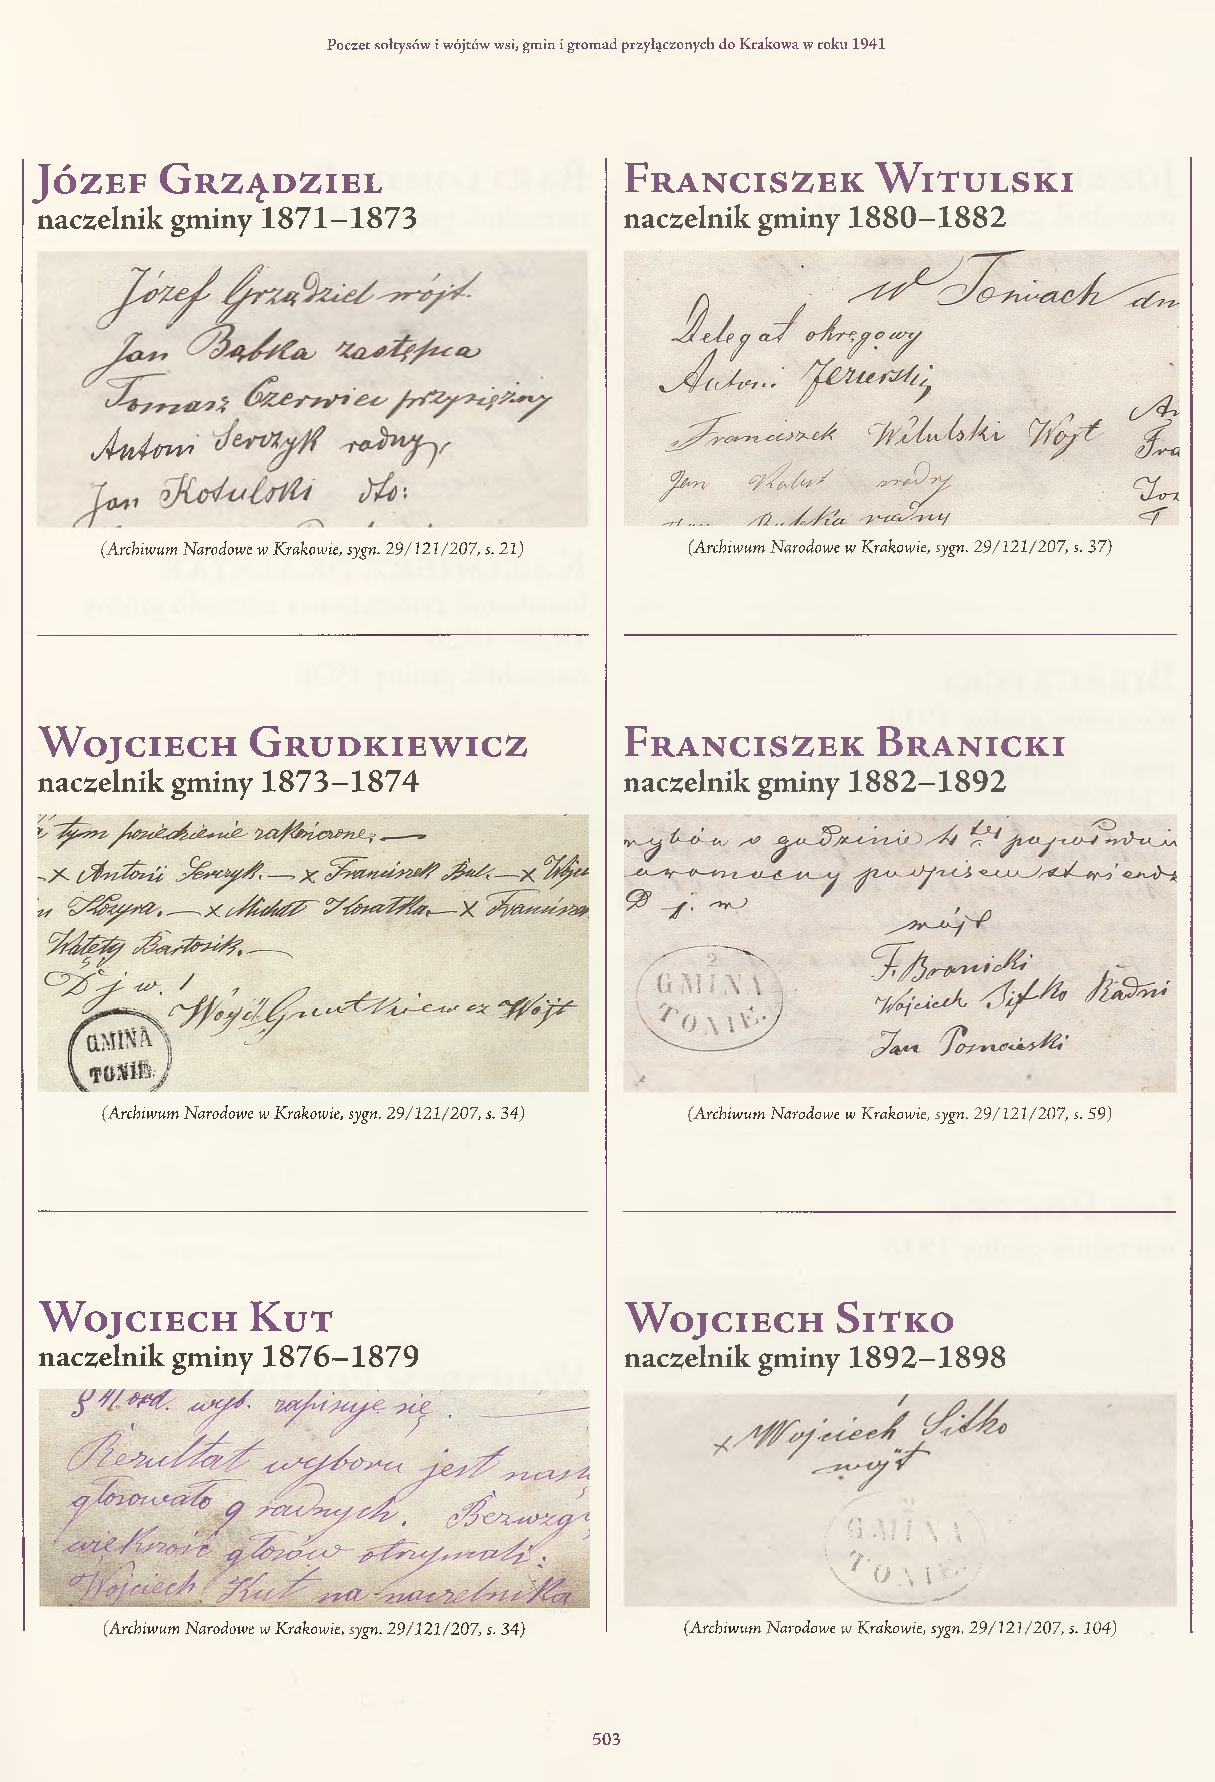 Poczet sołtysów i wójtów wsi, gmin i gromad przyłączonych do Krakowa w roku 1941
Józef Grządziel
naczelnik gminy 1871–1873
Józef Grządziel wójt.
Jan Bąbka zastępca
Tomasz Czerwiec przysiężny
Antoni Serczyk radny
Jan Kotulski dto:
(Archiwum Narodowe w Krakowie, sygn. 29/121/207, s. 21)
Wojciech Grudkiewicz
naczelnik gminy 1873–1874
tym posiedzienie zakończone; —
x Antoni Serczyk. — x Franciszek — x
Kozyra. — x Michał Kosatka. — x
Walęty Bartosik. —
D j w. !
Wójt
GMINA
TONIE
(Archiwum Narodowe w Krakowie, sygn. 29/121/207, s. 34)
Wojciech Kut
naczelnik gminy 1876–1879
§ 41 ord. wyb. zapisuje się. —
Rezultat wyboru jest nast
głosowało 9 radnych. Bezwzg
większość głosów otrzymali:
Wojciech Kut na naczelnika
(Archiwum Narodowe w Krakowie, sygn. 29/121/207, s. 34)
Franciszek Witulski
naczelnik gminy 1880–1882
w Toniach dn
Delegat okręgowy
Antoni Jezierski
Franciszek Witulski Wójt
Jan radny
Bąbka radny
(Archiwum Narodowe w Krakowie, sygn. 29/121/207, s. 37)
Franciszek Branicki
naczelnik gminy 1882–1892
o godzinie 4 tej popołudniu
podpisem
D j. w
wójt
F. Branicki
Wojciech Sitko Radni
Jan
2
GMINA
TONIE.
(Archiwum Narodowe w Krakowie, sygn. 29/121/207, s. 59)
Wojciech Sitko
naczelnik gminy 1892–1898
x Wojciech Sitko
wójt
GMINA
TONIE.
(Archiwum Narodowe w Krakowie, sygn. 29/121/207, s. 104)
503